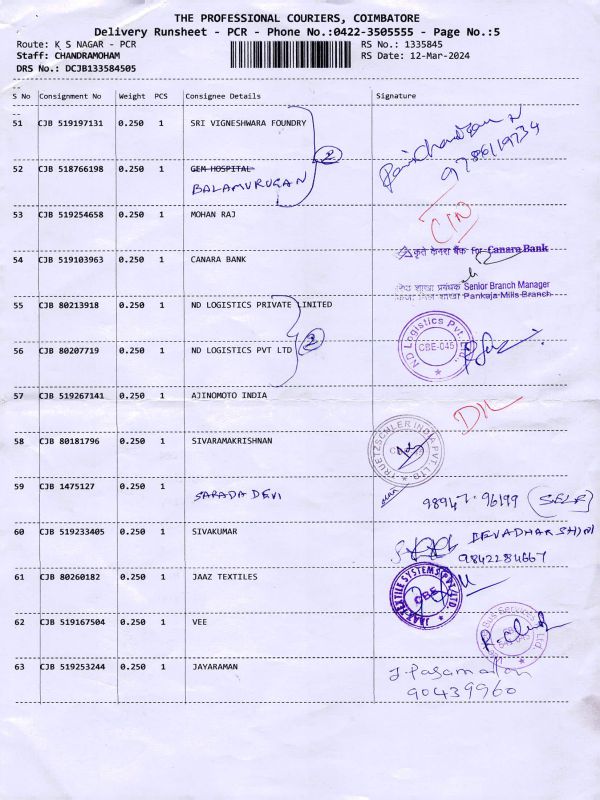 THE PROFESSIONAL COURIERS, COIMBATORE
Delivery Runsheet - PCR - Phone No.:0422-3505555 - Page No.:5
Route: K S NAGAR - PCR
RS No.: 1335845
Staff: CHANDRAMOHAM
RS Date: 12-Mar-2024
DRS No.: DCJB133584505
S No Consignment No Weight PCS Consignee Details Signature
51 CJB 519197131 0.250 1 SRI VIGNESHWARA FOUNDRY
9786119234
52 CJB 518766198 0.250 1 GEM HOSPITAL
BALAMURUGAN
2
53 CJB 519254658 0.250 1 MOHAN RAJ
54 CJB 519103963 0.250 1 CANARA BANK
कृते केनरा बैंक For Canara Bank
शाखा प्रबंधक Senior Branch Manager
Pankaja Mills Branch
55 CJB 80213918 0.250 1 ND LOGISTICS PRIVATE LIMITED
56 CJB 80207719 0.250 1 ND LOGISTICS PVT LTD
2
ND Logistics Pvt. Ltd.
CBE-045
57 CJB 519267141 0.250 1 AJINOMOTO INDIA
DIL
58 CJB 80181796 0.250 1 SIVARAMAKRISHNAN
TRUETZSCHLER INDIA PVT LTD
59 CJB 1475127 0.250 1 SARADA DEVI
98947-96199 (SELF)
60 CJB 519233405 0.250 1 SIVAKUMAR
DEVADHARSHINI
9842284667
61 CJB 80260182 0.250 1 JAAZ TEXTILES
TEXTILE SYSTEMS (P) LTD.
CBE
62 CJB 519167504 0.250 1 VEE
Bus Services
Ltd.
63 CJB 519253244 0.250 1 JAYARAMAN
90439960